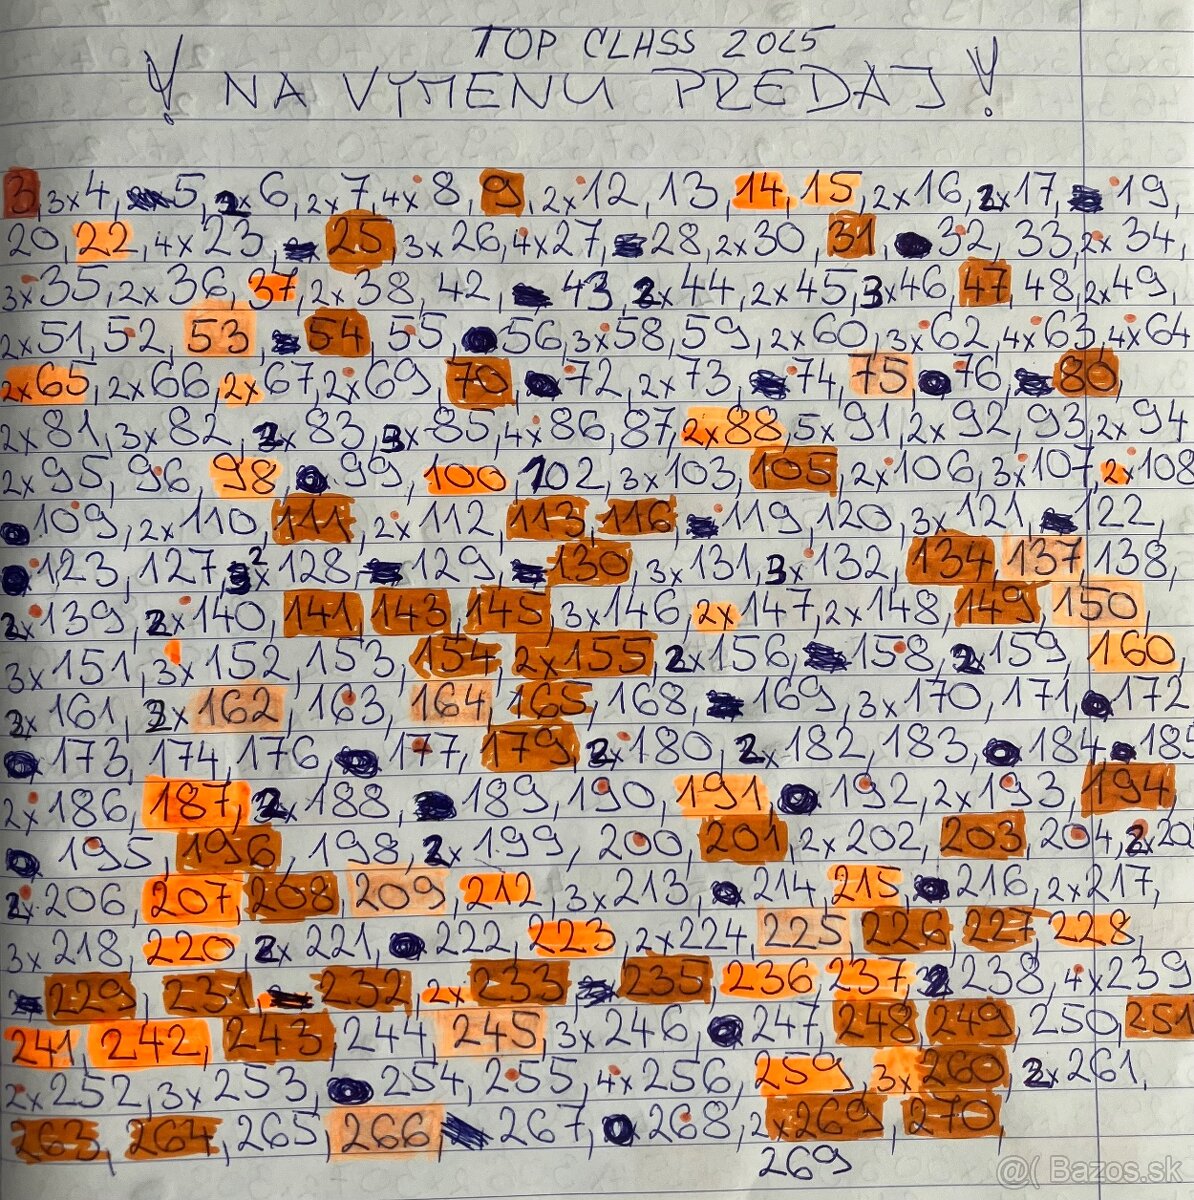 TOP CLASS 2025
! NA VÝMENU PREDAJ !
3, 3x4, 5, 2x6, 2x7, 4x8, 9, 2x12, 13, 14, 15, 2x16, 2x17, 19,
20, 22, 4x23, 25, 3x26, 4x27, 28, 2x30, 31, 32, 33, 2x34,
3x35, 2x36, 37, 2x38, 42, 43, 2x44, 2x45, 3x46, 47, 48, 2x49,
2x51, 52, 53, 54, 55, 56, 3x58, 59, 2x60, 3x62, 4x63, 4x64
2x65, 2x66, 2x67, 2x69, 70, 72, 2x73, 74, 75, 76, 80,
2x81, 3x82, 2x83, 3x85, 4x86, 87, 2x88, 5x91, 2x92, 93, 2x94
2x95, 96, 98, 99, 100, 102, 3x103, 105, 2x106, 3x107, 2x108
109, 2x110, 111, 2x112, 113, 116, 119, 120, 3x121, 122,
123, 127, 2x128, 129, 130, 3x131, 3x132, 134, 137, 138,
2x139, 2x140, 141, 143, 145, 3x146, 2x147, 2x148, 149, 150,
3x151, 3x152, 153, 154, 2x155, 2x156, 158, 2x159, 160,
3x161, 2x162, 163, 164, 165, 168, 169, 3x170, 171, 172
173, 174, 176, 177, 179, 2x180, 2x182, 183, 184, 185
2x186, 187, 2x188, 189, 190, 191, 192, 2x193, 194
195, 196, 198, 2x199, 200, 201, 2x202, 203, 204, 2x
2x206, 207, 208, 209, 212, 3x213, 214, 215, 216, 2x217,
3x218, 220, 2x221, 222, 223, 2x224, 225, 226, 227, 228,
229, 231, 232, 2x233, 235, 236, 237, 2x238, 4x239
241, 242, 243, 244, 245, 3x246, 247, 248, 249, 250, 251
2x252, 3x253, 254, 255, 4x256, 259, 3x260, 2x261,
263, 264, 265, 266, 267, 268, 2x269, 270,
269
@( Bazos.sk